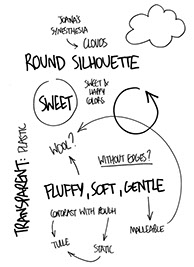 JOANA'S
SYNESTHESIA
CLOUDS
ROUND SILHOUETTE
SWEET
SWEET &
HAPPY
COLORS
WOOL?
WITHOUT EDGES?
TRANSPARENT: PLASTIC
FLUFFY, SOFT, GENTLE
CONTRAST WITH ROUGH
MALLEABLE
TULLE
STATIC